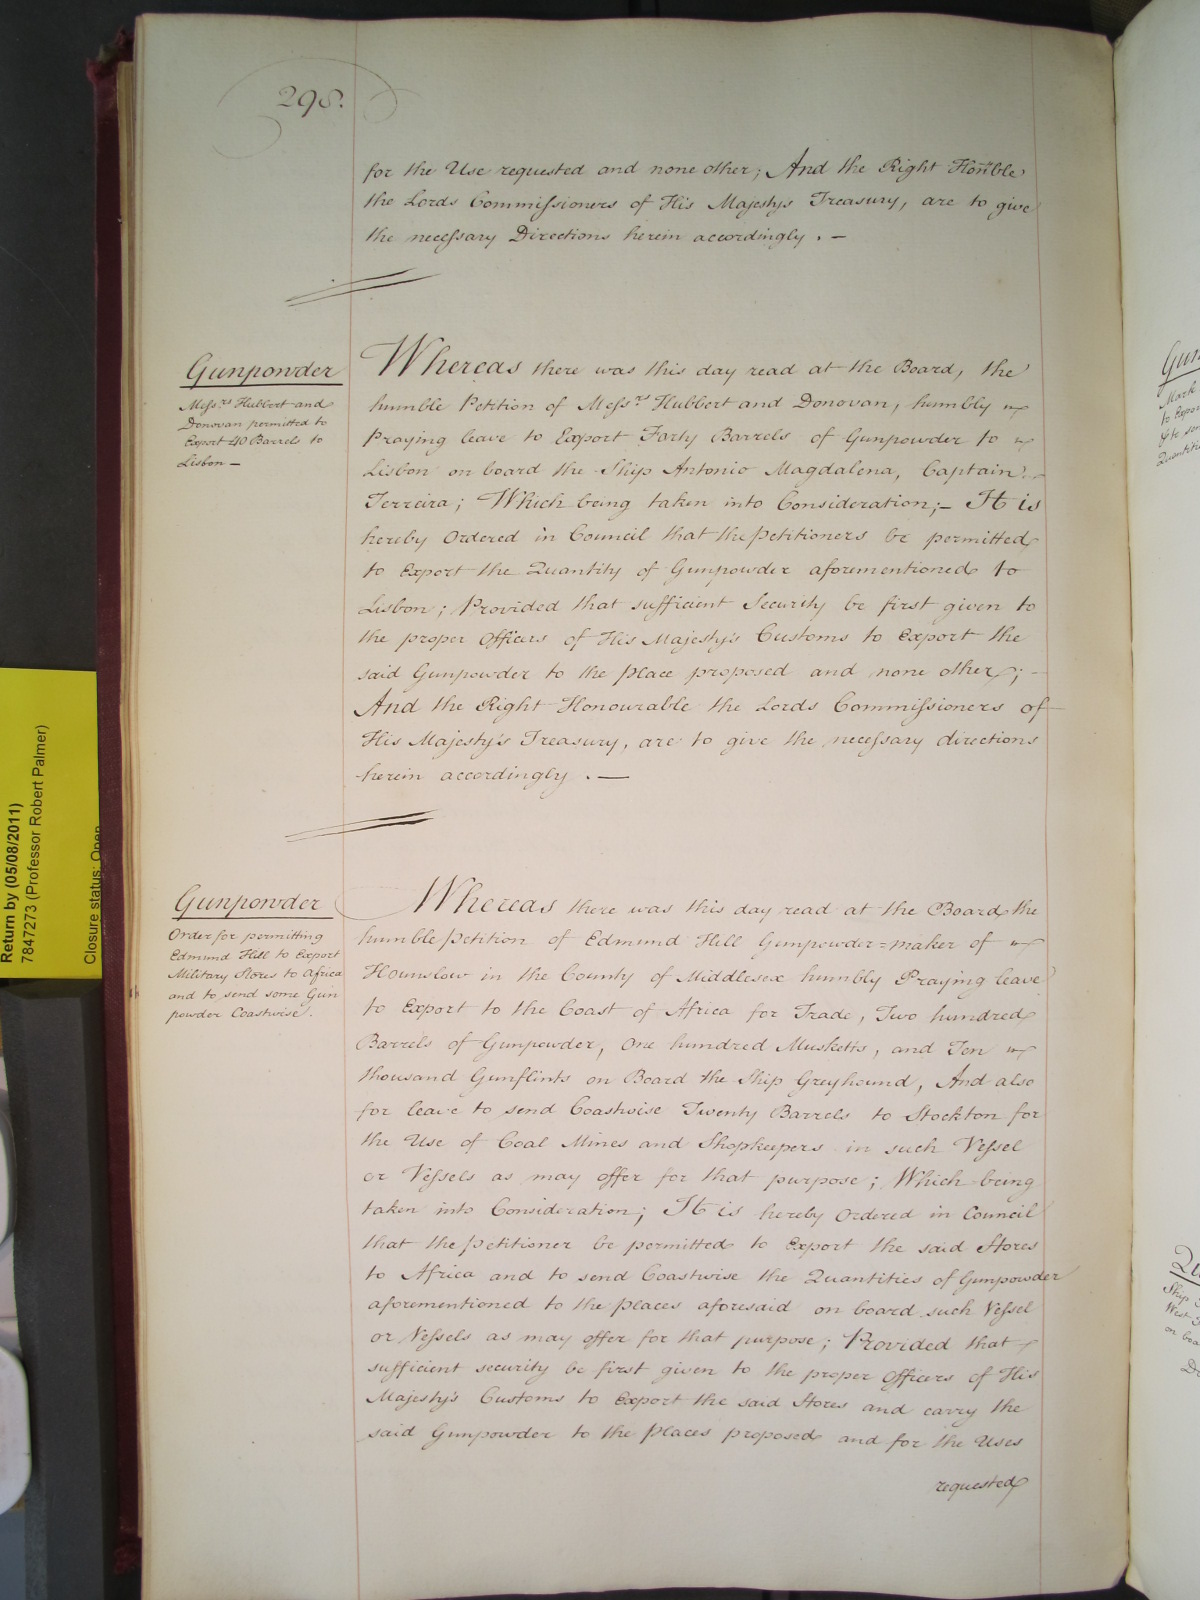 298.
for the Use requested and none other; And the Right Hon.ble
the Lords Commissioners of His Majestys Treasury, are to give
the necessary Directions herein accordingly. —
Gunpowder
Mess.rs Hubbert and
Donovan permitted to
Export 40 Barrels to
Lisbon —
Whereas there was this day read at the Board, the
humble Petition of Mess.rs Hubbert and Donovan, humbly
Praying leave to Export Forty Barrels of Gunpowder to
Lisbon on board the Ship Antonio Magdalena, Captain
Ferreira; Which being taken into Consideration; — It is
hereby Ordered in Council that the Petitioners be permitted
to Export the Quantity of Gunpowder aforementioned to
Lisbon; Provided that sufficient Security be first given to
the proper Officers of His Majesty's Customs to Export the
said Gunpowder to the Place proposed and none other; -
And the Right Honourable the Lords Commissioners of
His Majesty's Treasury, are to give the necessary directions
herein accordingly. —
Gunpowder
Order for permitting
Edmund Hill to Export
Military Stores to Africa
and to send some Gun
powder Coastwise.
Whereas there was this day read at the Board the
humble Petition of Edmund Hill Gunpowder-maker of
Hounslow in the County of Middlesex humbly Praying leave
to Export to the Coast of Africa for Trade, Two hundred
Barrels of Gunpowder, One hundred Musketts, and Ten
thousand Gunflints on Board the Ship Greyhound, And also
for leave to send Coastwise Twenty Barrels to Stockton for
the Use of Coal Mines and Shopkeepers in such Vessel
or Vessels as may offer for that purpose; Which being
taken into Consideration; It is hereby Ordered in Council
that the Petitioner be permitted to Export the said Stores
to Africa and to send Coastwise the Quantities of Gunpowder
aforementioned to the places aforesaid on board such Vessel
or Vessels as may offer for that purpose; Provided that
sufficient security be first given to the proper Officers of His
Majesty's Customs to Export the said Stores and carry the
said Gunpowder to the Places proposed and for the Uses
requested
Return by (05/08/2011)
7847273 (Professor Robert Palmer)
Closure status: Open